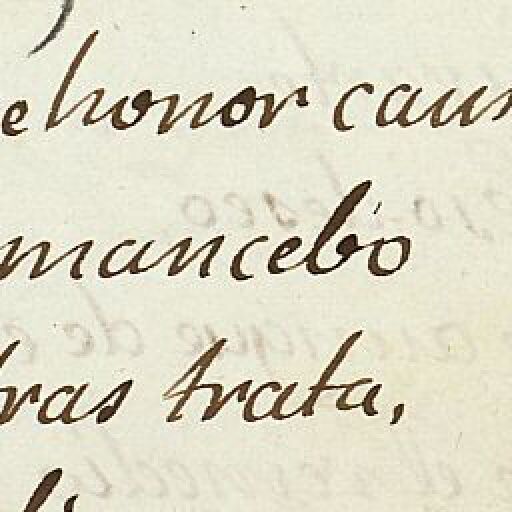 e honor caus
mancebo
ras trata,